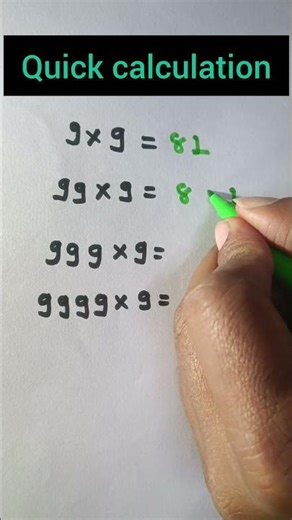 Quick calculation
9 × 9 = 81
99 × 9 = 8
999 × 9 =
9999 × 9 =